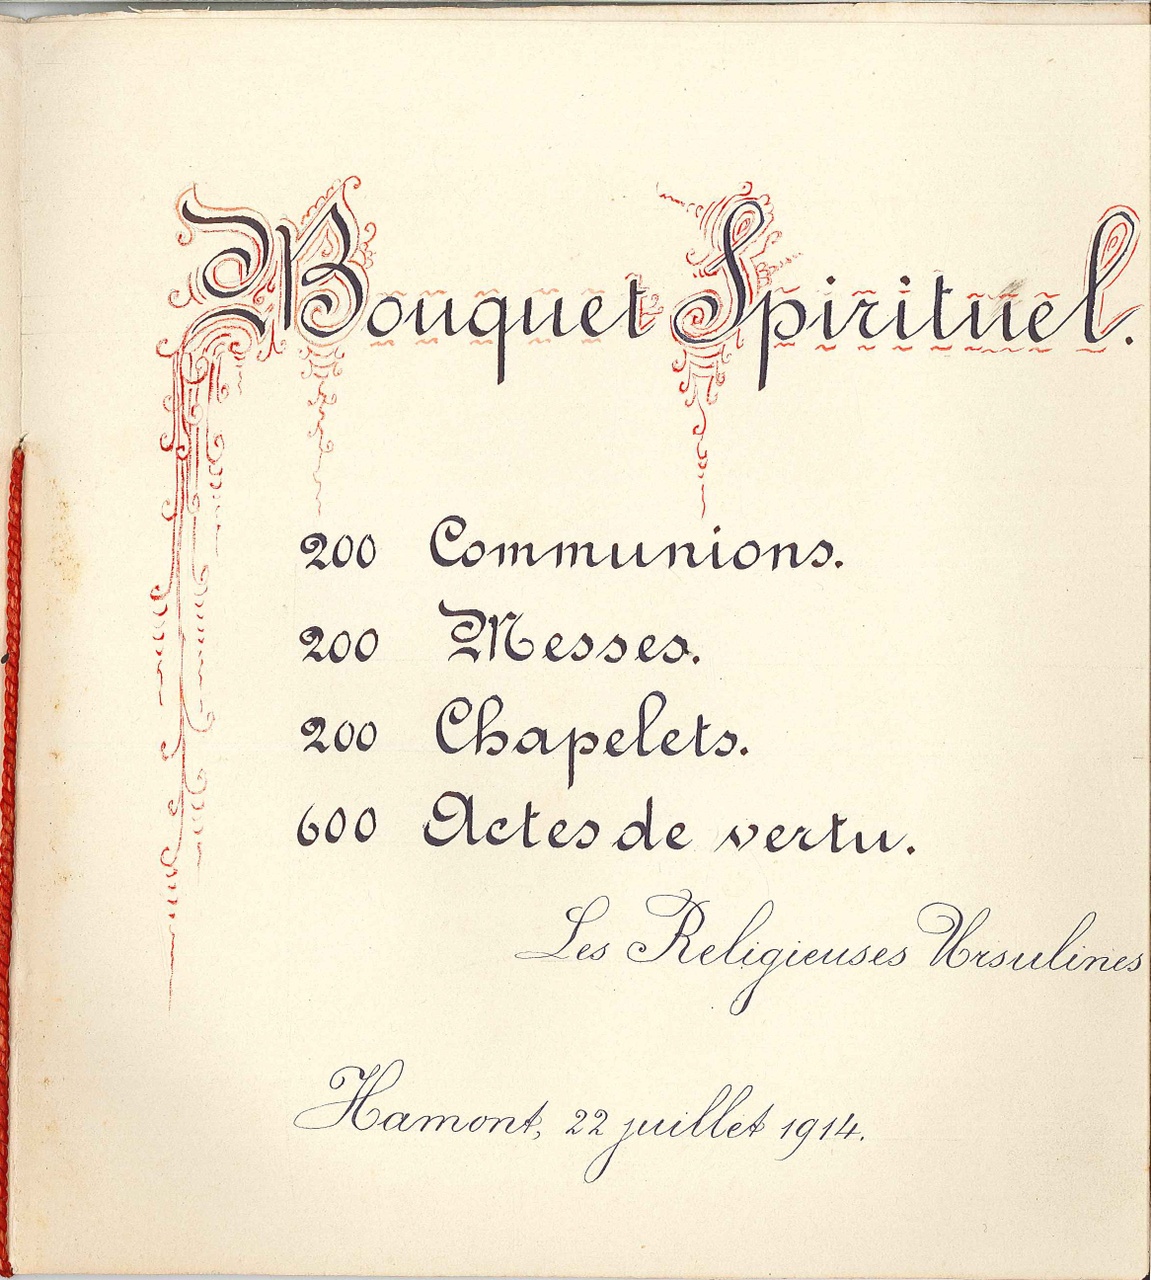 Bouquet Spirituel.
200 Communions.
200 Messes.
200 Chapelets.
600 Actes de vertu.
Les Religieuses Ursulines
Hamont, 22 juillet 1914.